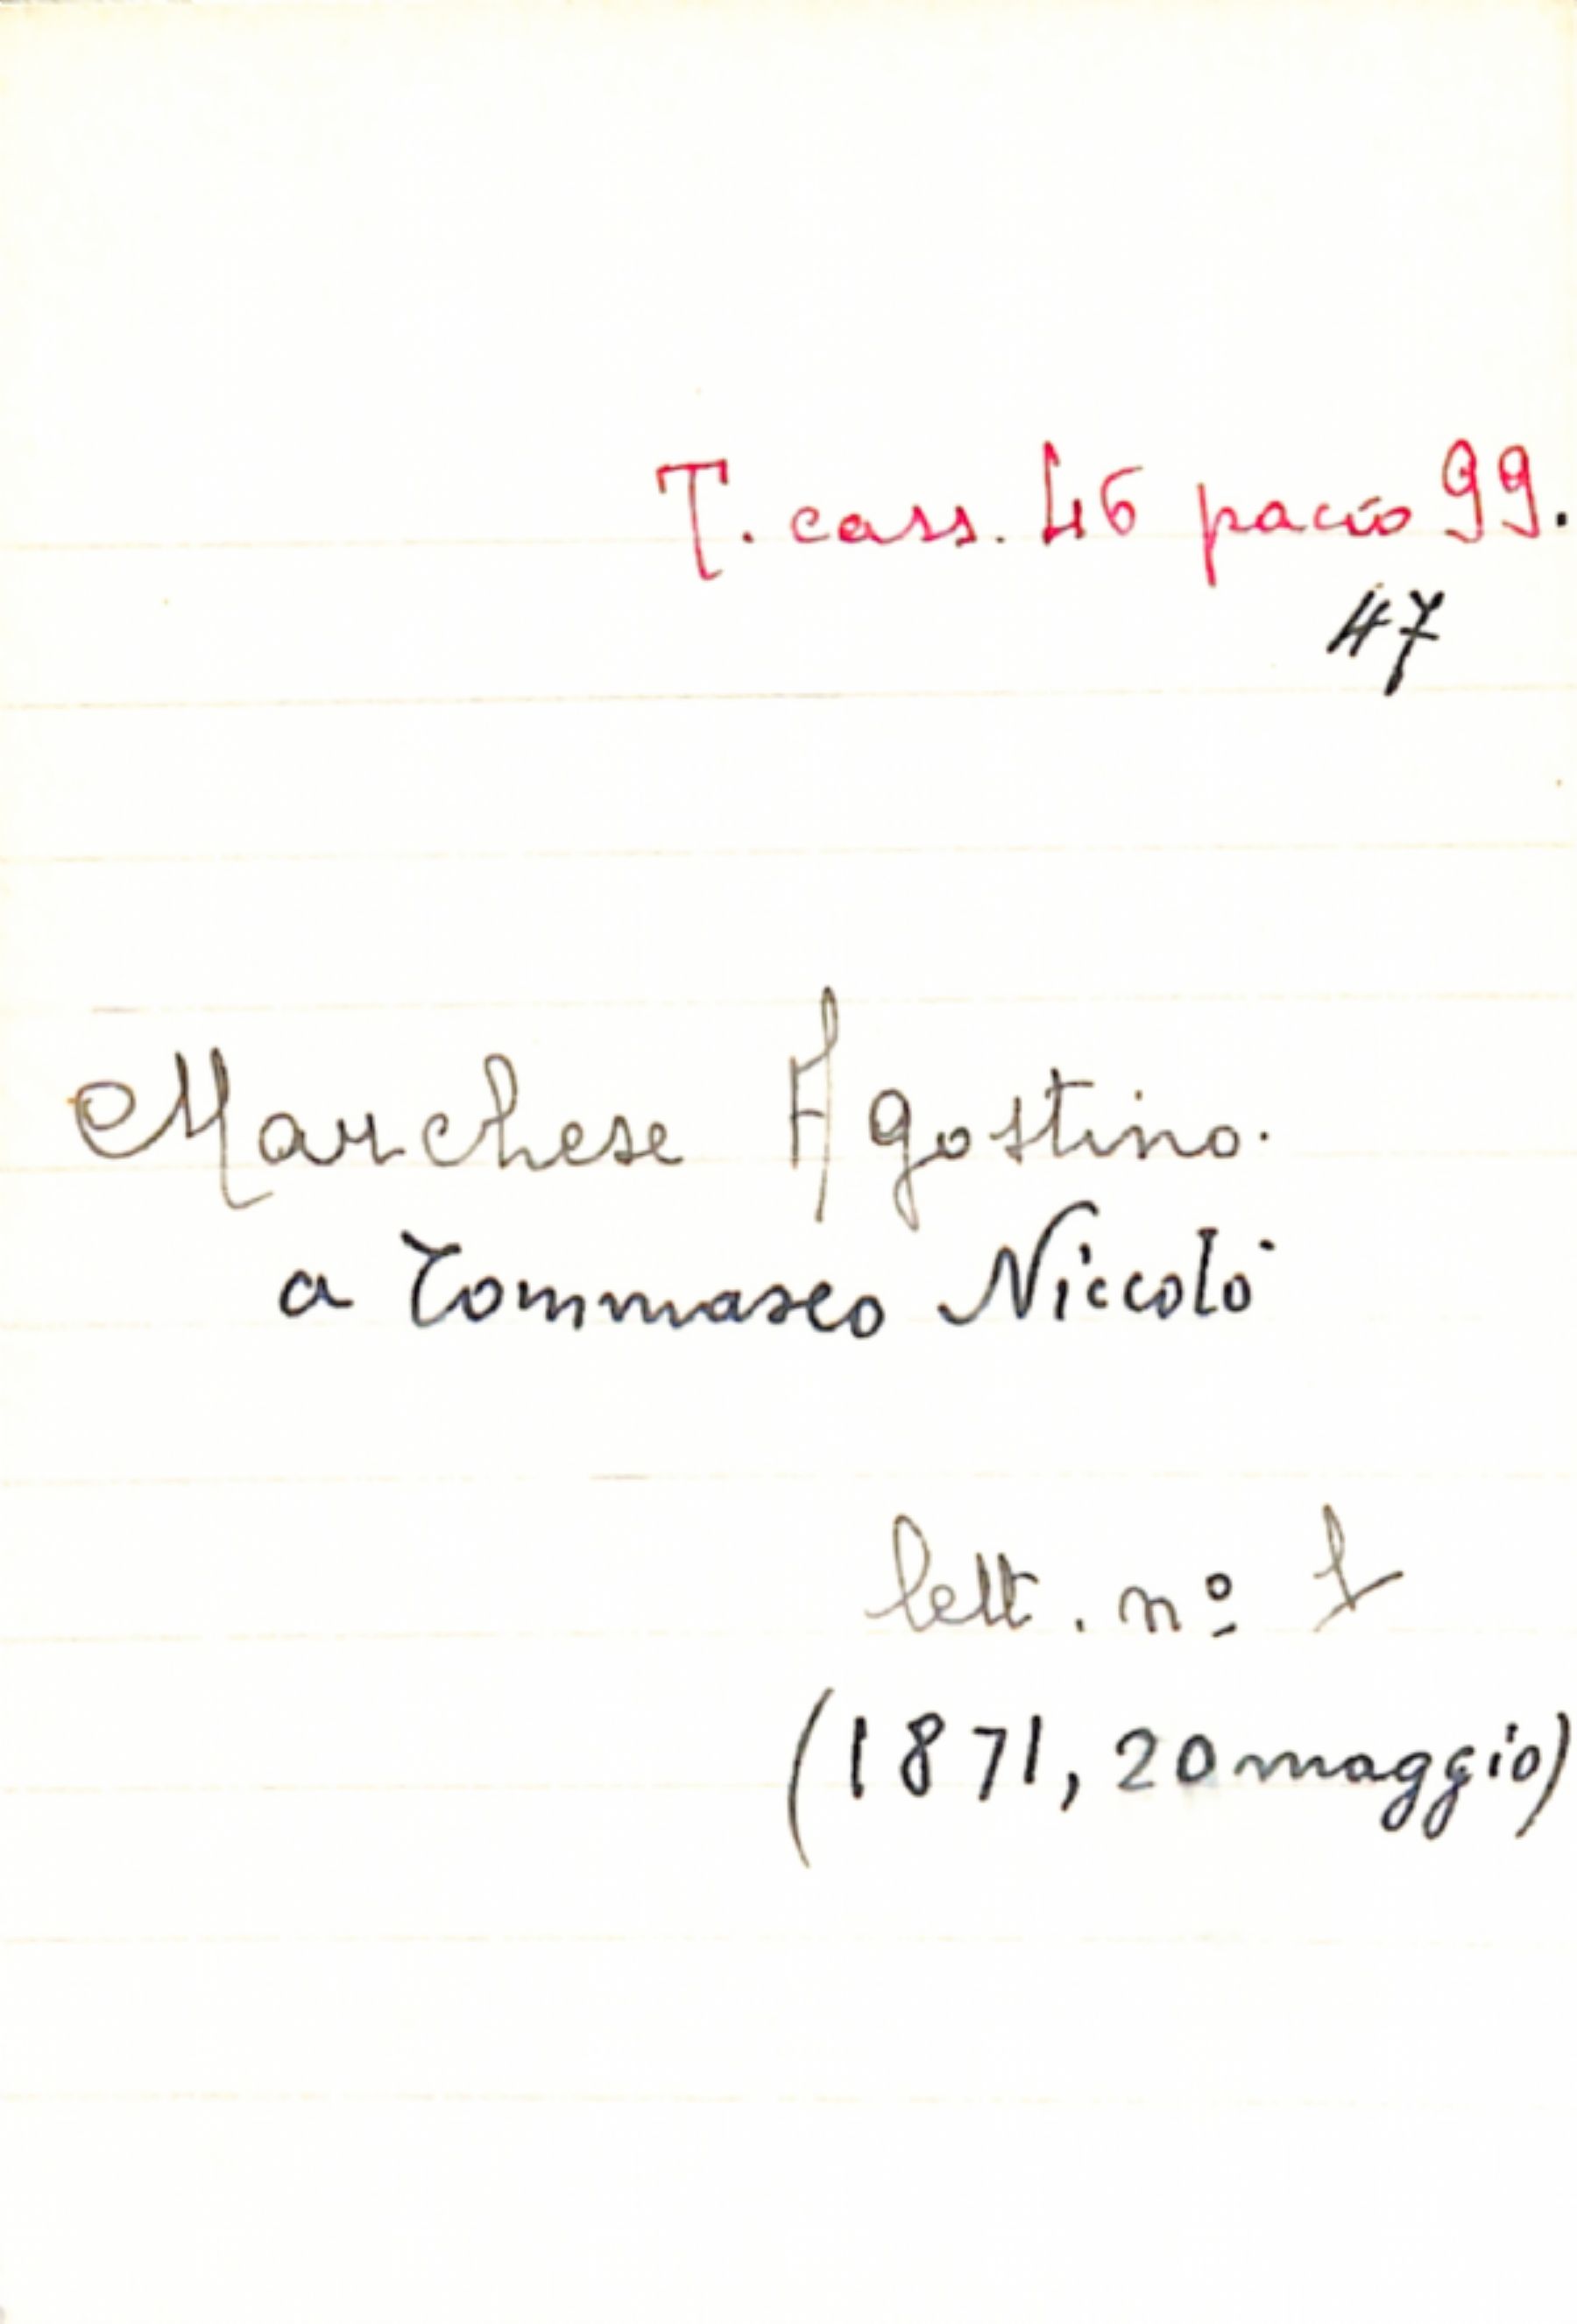 T. cass. 46 pacco 99.
47
Marchese Agostino.
a Tommaseo Niccolò
lett. nº 1
(1871, 20 maggio)